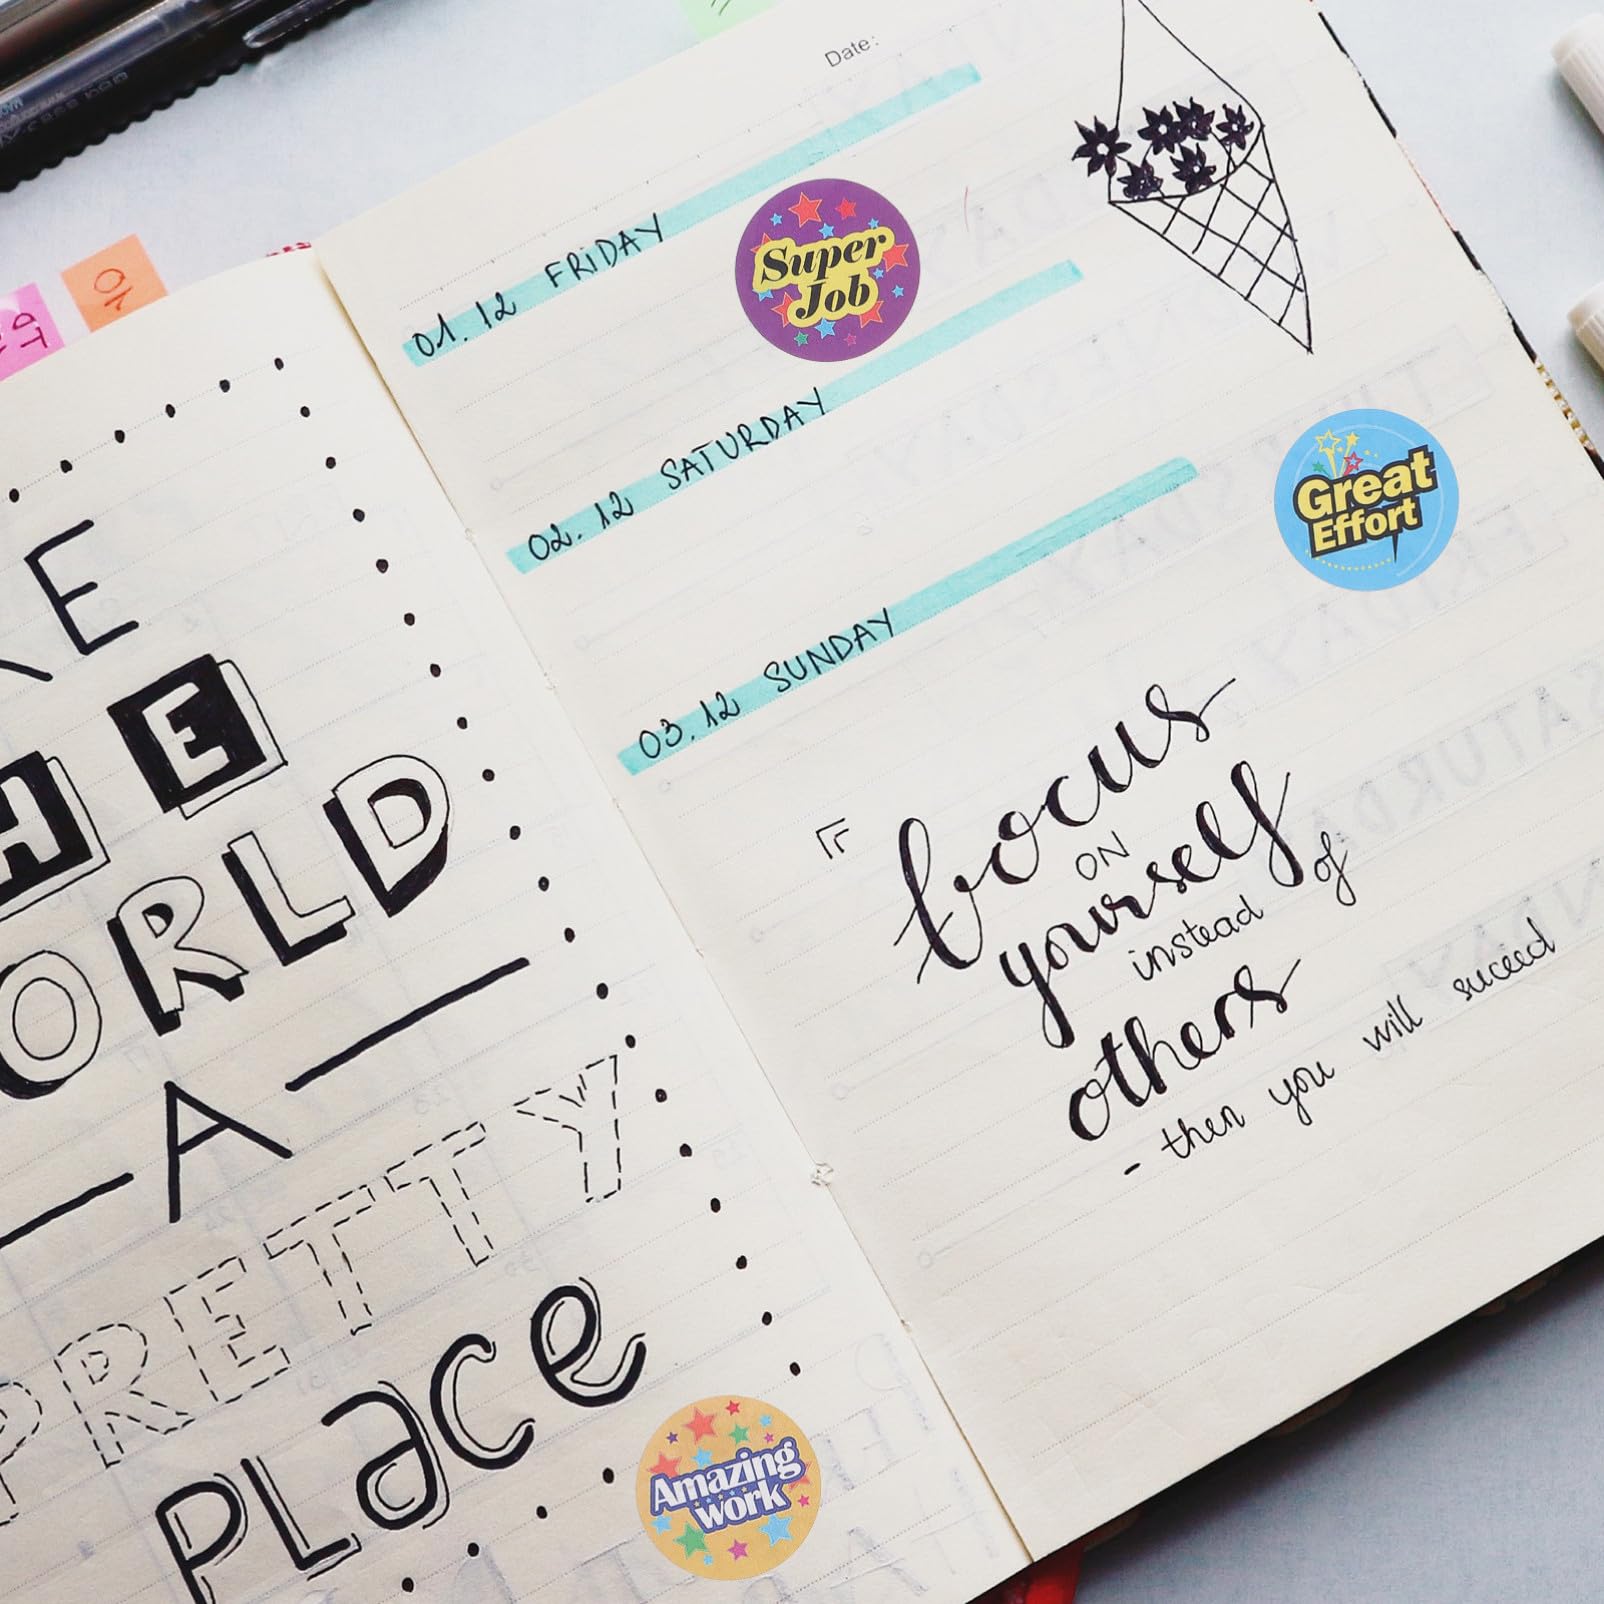 KE
HE
ORLD
A
PRETTY
Place
Date:
01.12 FRIDAY
Super
Job
02.12 SATURDAY
Great
Effort
03.12 SUNDAY
focus
ON
yourself
instead of
others
- then you will suceed
Amazing
work